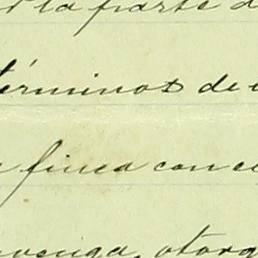 la parte d
términos de
finca con e
venga, otorg